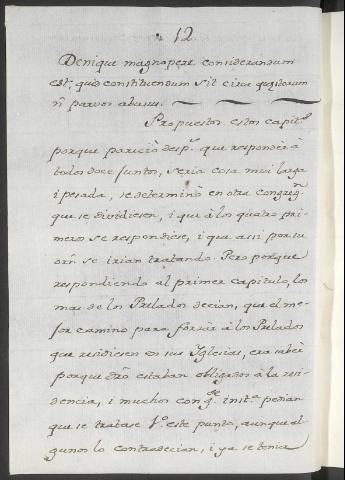 12.
Denique magnopere considerandum
est, quid constituendum sit circa quæstorum
ñ parvos abusus.
Propuestos estos capit.s
porque pareció desp.s que responder à
todos doce juntos, seria cosa mui larga
i pesada, se determinó en otra congreg.n
que se dividiesen, i que à los quatro pri-
meros se respondiese, i que assi por su
orñ se irian tratando. Pero porque
respondiendo al primer capitulo, los
mas de los Prelados decian, que el me-
jor camino para forzar à los Prelados
que residiesen en sus Iglesias, era saber
porque dro estaban obligados à la resi-
dencia, i muchos con g.de inst.a pedian
que se tratase 1.o este punto, aunque al
gunos lo contradecian, i ya se tenia